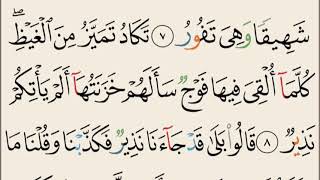 شَهِيقًا وَهِيَ تَفُورُ ٧ تَكَادُ تَمَيَّزُ مِنَ ٱلْغَيْظِۖ
كُلَّمَآ أُلْقِىَ فِيهَا فَوْجٌ سَأَلَهُمْ خَزَنَتُهَآ أَلَمْ يَأْتِكُمْ
نَذِيرٌ ٨ قَالُوا۟ بَلَىٰ قَدْ جَآءَنَا نَذِيرٌ فَكَذَّبْنَا وَقُلْنَا مَا